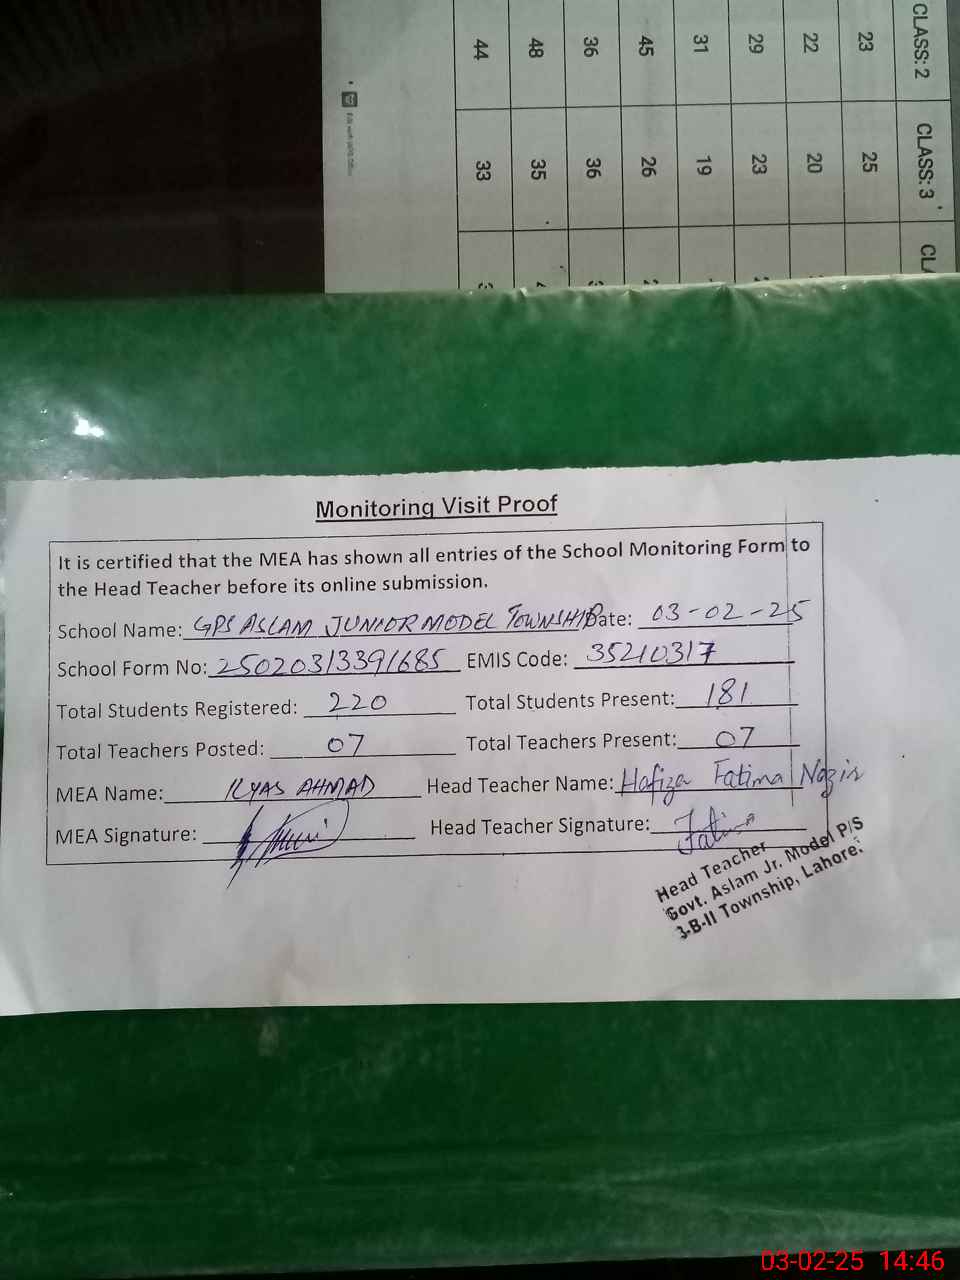 CLASS: 2
CLASS: 3
CL
23
25
22
20
29
23
31
19
45
26
36
36
48
35
44
33
Monitoring Visit Proof
It is certified that the MEA has shown all entries of the School Monitoring Form to
the Head Teacher before its online submission.
School Name: GPS ASLAM JUNIOR MODEL TOWNSHIP Date: 03-02-25
School Form No: 2502031339 1685 EMIS Code: 35210317
Total Students Registered: 220 Total Students Present: 181
Total Teachers Posted: 07 Total Teachers Present: 07
MEA Name: ILYAS AHMAD Head Teacher Name: Hafiza Fatima Nazir
MEA Signature: Head Teacher Signature: Fatima
Head Teacher
Govt. Aslam Jr. Model P/S
3-B-II Township, Lahore.
03-02-25 14:46